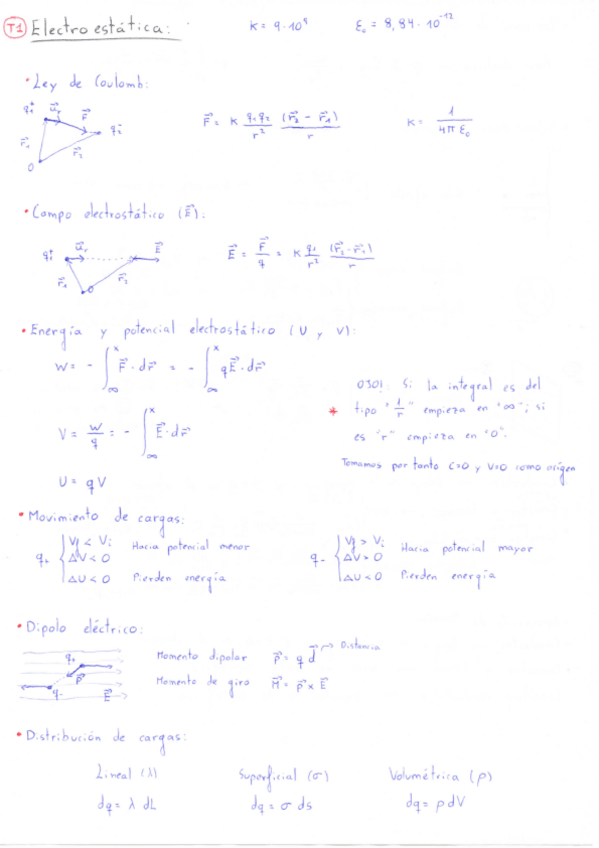 T1 Electroestática: K = 9·10⁹ ε₀ = 8,84·10⁻¹²
• Ley de Coulomb:
q₁⁺ u⃗ᵣ F⃗ q₂⁻ r⃗₁ r⃗₂ O
F⃗ = K q₁q₂/r² (r⃗₂ - r⃗₁)/r K = 1/(4π ε₀)
• Campo electrostático (E⃗):
q₁⁺ u⃗ᵣ E⃗ r⃗₁ r⃗₂ O
E⃗ = F⃗/q = K q₁/r² (r⃗₂-r⃗₁)/r
• Energía y potencial electrostático (U y V):
W = - ∫_∞^x F⃗·dr⃗ = - ∫_∞^x qE⃗·dr⃗
V = W/q = - ∫_∞^x E⃗·dr⃗
U = qV
OJO!. Si la integral es del
* tipo "1/r" empieza en "∞"; si
es "r" empieza en "0".
Tomamos por tanto C=0 y V=0 como origen
• Movimiento de cargas:
q₊ Vf < Vi Hacia potencial menor
ΔV < 0
ΔU < 0 Pierden energía
q₋ Vf > Vi Hacia potencial mayor
ΔV > 0
ΔU < 0 Pierden energía
• Dipolo eléctrico:
q₊ p⃗ q₋ E⃗
Momento dipolar p⃗ = q d⃗ → Distancia
Momento de giro M⃗ = p⃗ x E⃗
• Distribución de cargas:
Lineal (λ) Superficial (σ) Volumétrica (ρ)
dq = λ dL dq = σ ds dq = ρ dV